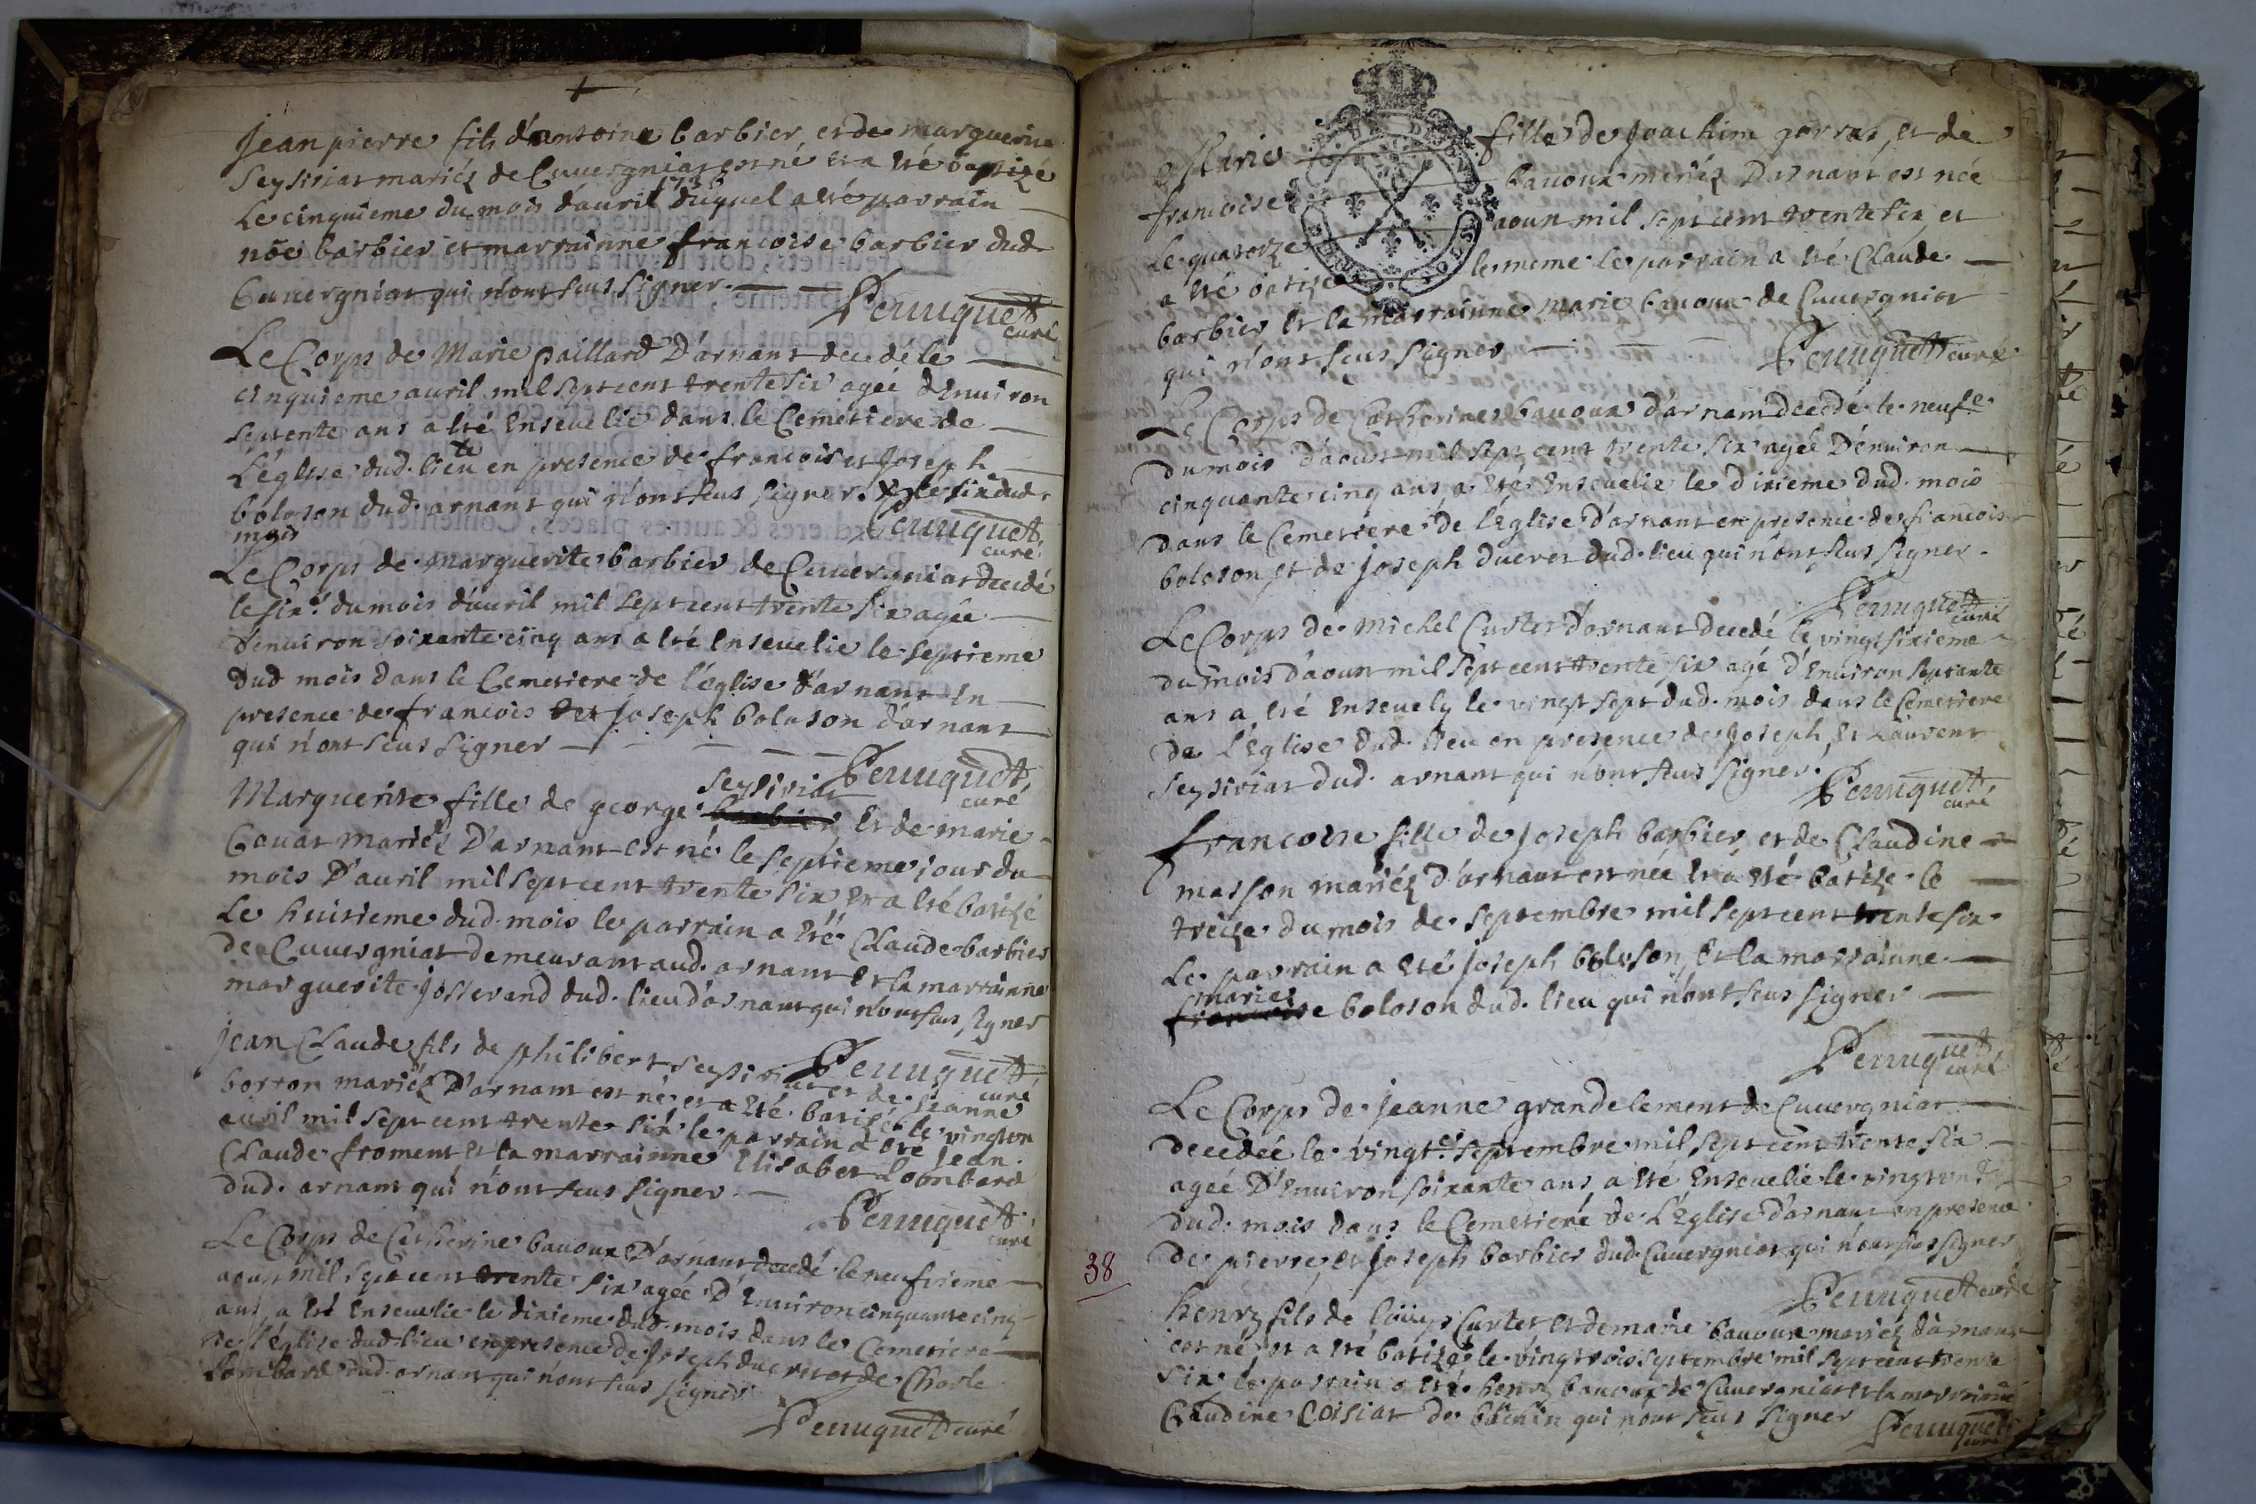 Jean pierre fils d'antoine barbier et de marguerite
Seysiriat mariéz de Cuuergniat est né et a eté baptizé
1736
Le cinquieme du mois d'auril duquel a eté parrain
noë barbier et marrainne francoise barbier dud.
Cuuergniat qui n'ont sçus signer.
Perruquet
curé
Le Corps de Marie paillard D'arnant decedé le
cinquieme auril mil sept cent trente six ageé d'Enuiron
septente ans a eté Enseuelie dans le Cemetiere de
L'églese dud. lieu en presence de francois et Joseph
boloson dud. arnant qui n'ont sçus signer. le six dud.
mois
Perruquet
curé
Le Corps de marguerite barbier de Cuuergniat decedé
le six.e du mois d'auril mil sept cent trente six ageé
d'enuiron soixante cinq ans a eté Enseuelie le septieme
dud mois dans le Cemetiere de l'églese d'arnant En
presence de francois et Joseph boloson d'arnant
qui n'ont sçus signer
Perruquet
curé
Seysiriat
Marguerite fille de george barbier Et de marie
Gouat mariéz D'arnant est né le septieme jour du
mois D'auril mil sept cent trente six et a eté batizé
Le huitieme dud. mois le parrain a eté Claude barbier
de Cuuergniat demeurant aud. arnant et la marrainne
marguerite josserand dud. lieu d'arnant qui n'ont sçus signer
Perruquet
curé
jean Claude fils de philibert seysiriat et de jeanne
borron mariéz D'arnant est né et a eté batizé le vingt un
auril mil sept cent trente six le parrain a eté jean
Claude froment et la marrainne Elisabet Loombard
dud. arnant qui n'ont sçus signer
Perruquet
curé
Le Corps de Catherine bauoux D'arnant decedé le neufuieme
aoust mil sept cent trente six ageé D'Enuiron cinquante cinq
ans a eté Enseuelie le dixieme dud. mois dans le Cemetiere
de l'églize dud lieu en presence de Joseph ducret et de Charle
Lombard dud. arnant qui n'ont sçus signer
Perruquet curé
Marie fille de Joachim gorras et de
francoise bauoux mariéz D'arnant est née
Le quatorze aoust mil sept cent trente six et
a eté batizé le meme le parrain a eté Claude
barbier et la marrainne marie bauoux de Cuuergniat
qui n'ont sçus signer
Perruquet curé
Le Corps de Catherine bauoux d'arnant decedé le neuf.e
du mois d'aoust mil sept cent trente six ageé D'enuiron
cinquante cinq ans a eté Enseuelie le dixieme dud. mois
dans le Cemetiere de l'Eglise d'arnant en presence de francois
boloson et de joseph ducret dud. lieu qui n'ont sçus signer.
Perruquet
curé
Le Corps de michel Curtet d'arnant decedé le vingt sixieme
du mois d'aoust mil sept cent trente six agé d'Enuiron septante
ans a eté Enseuely le vingt sept dud. mois dans le Cemetiere
de l'Eglise dud. lieu en presence de Joseph et Laurent
seysiriat dud. arnant qui n'ont sçus signer.
Perruquet
curé
francoise fille de Joseph barbier et de Claudine
masson mariéz d'arnant est née et a eté batize le
treize du mois de septembre mil sept cent trente six
Le parrain a eté Joseph boloson, Et la marrainne
marie
francoise boloson dud. lieu qui n'ont sçus signer
Perruquet
curé
Le Corps de Jeanne grandclement de Cuuergniat
decedée le vingt.e septembre mil sept cent trente six
ageé D'Enuiron soixante ans a eté Enseuelie le vingt un
dud. mois dans le Cemetiere de L'Eglise d'arnant en presence
de pierre et Joseph barbier dud. Cuuergniat qui n'ont sçus signer
38
Perruquet curé
henry fils de loüys Curtet et de marie bauoux mariéz d'arnant
est né et a eté batizé le vingt trois septembre mil sept cent trente
six le parrain a eté henry bauoux de Cuuergniat et la marrainne
Claudine Coisiat de qui n'ont sçus signer
Perruquet
curé